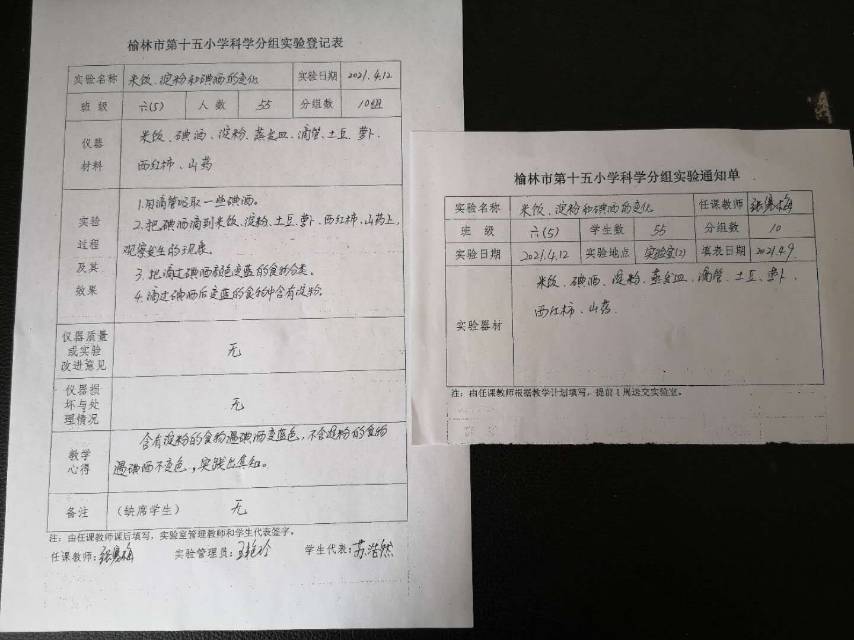 榆林市第十五小学科学分组实验登记表
实验名称 米饭、淀粉和碘酒的变化 实验日期 2021.4.12
班 级 六(5) 人 数 55 分组数 10组
仪器材料 米饭、碘酒、淀粉、蒸发皿、滴管、土豆、萝卜、
西红柿、山药
实验过程及其效果 1.用滴管吸取一些碘酒。
2.把碘酒滴到米饭、淀粉、土豆、萝卜、西红柿、山药上,
观察发生的现象。
3.把滴过碘酒颜色变蓝的食物分类。
4.滴过碘酒后变蓝的食物中含有淀粉。
仪器质量或实验改进意见 无
仪器损坏与处理情况 无
教学心得 含有淀粉的食物遇碘酒变蓝色,不含淀粉的食物
遇碘酒不变色,实践出真知。
备注 (缺席学生) 无
注:由任课教师课后填写,实验室管理教师和学生代表签字。
任课教师: 实验管理员: 学生代表:苏浩然
榆林市第十五小学科学分组实验通知单
实验名称 米饭、淀粉和碘酒的变化 任课教师
班 级 六(5) 学生数 55 分组数 10
实验日期 2021.4.12 实验地点 实验室(2) 填表日期 2021.4.9
实验器材 米饭、碘酒、淀粉、蒸发皿、滴管、土豆、萝卜、
西红柿、山药.
注:由任课教师根据教学计划填写,提前1周送交实验室。